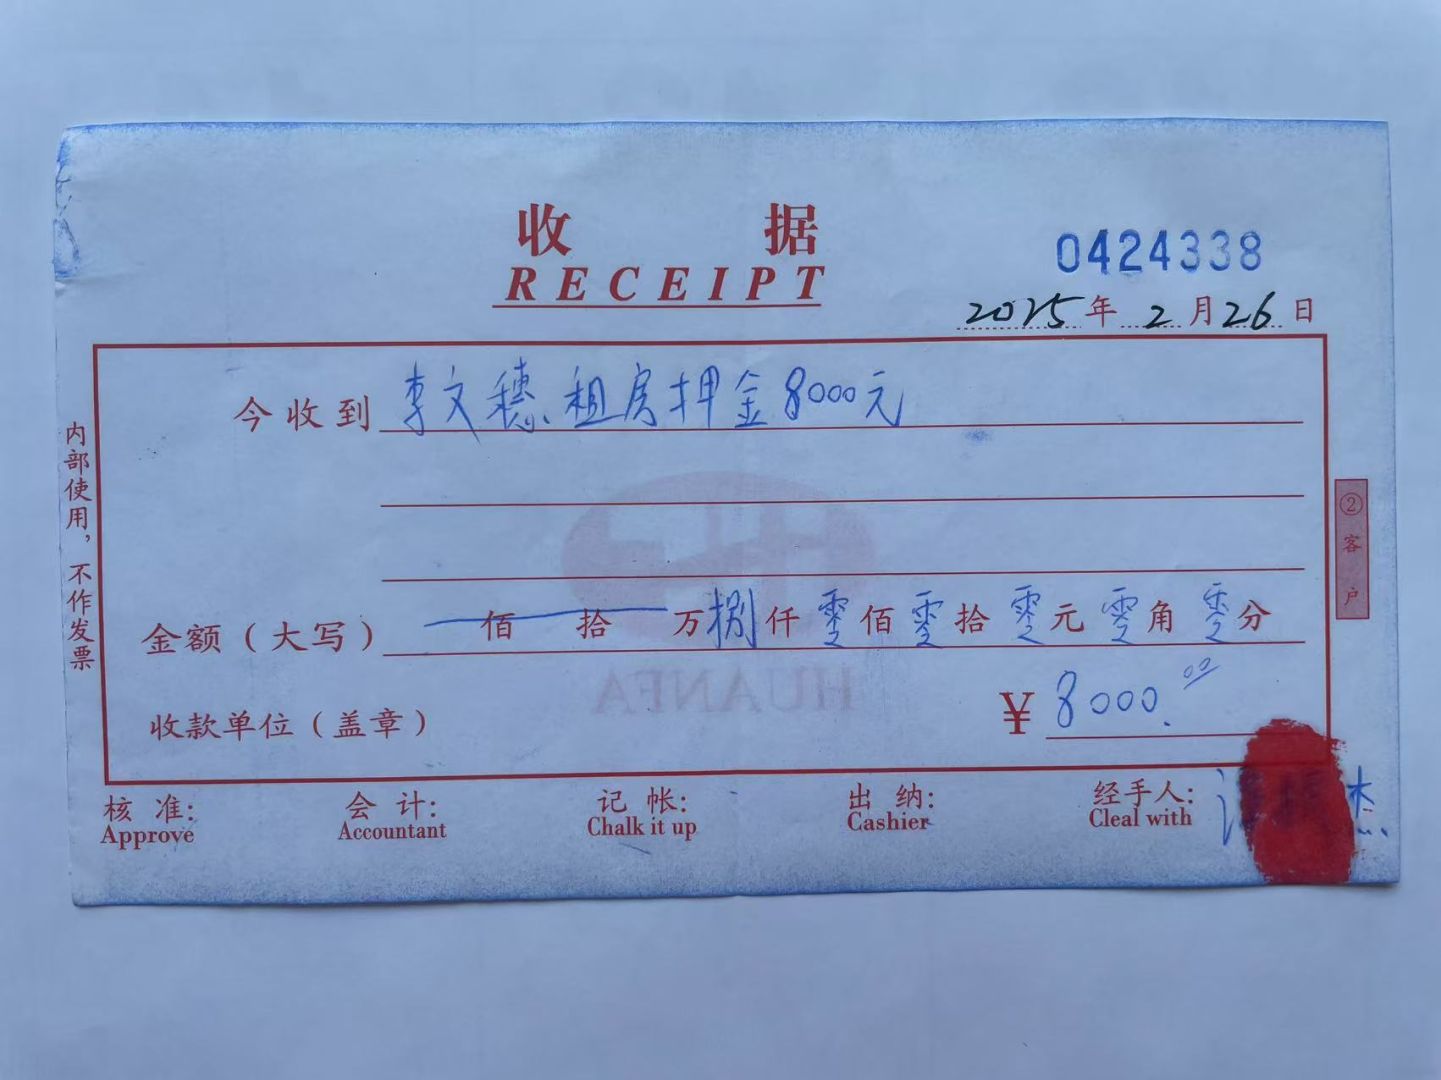 收据
RECEIPT
0424338
2025年2月26日
今收到 李文穗租房押金8000元
金额（大写） 佰 拾 万捌仟零佰零拾零元零角零分
收款单位（盖章） ¥ 8000.00
核准: 会计: 记帐: 出纳: 经手人: 杰
Approve Accountant Chalk it up Cashier Cleal with
内部使用，不作发票
②客户
HUANFA